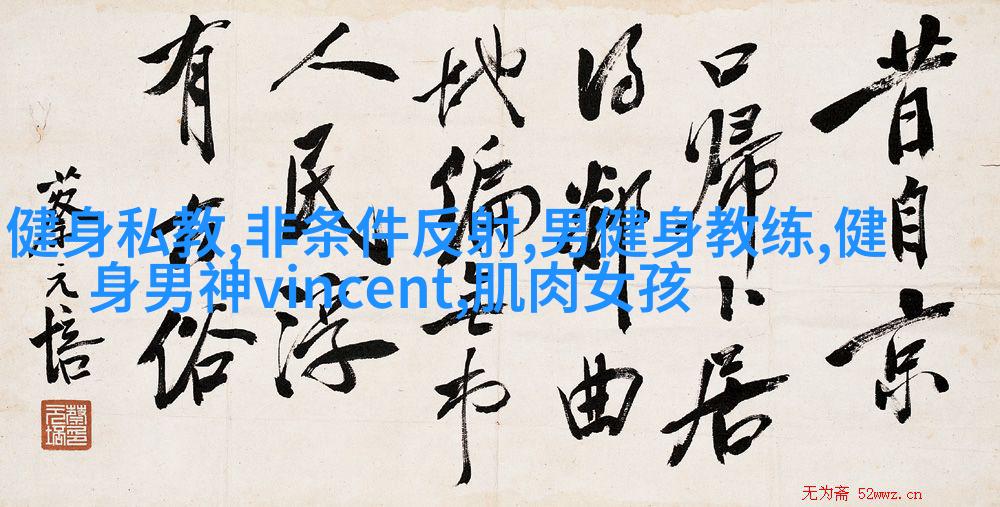 昔自京
口歸卜居
得鄰曲
地偏無市
人民淳
有古俗
蔡元培
健身私教,非条件反射,男健身教练,健
身男神vincent,肌肉女孩
无为斋 52wwz.cn